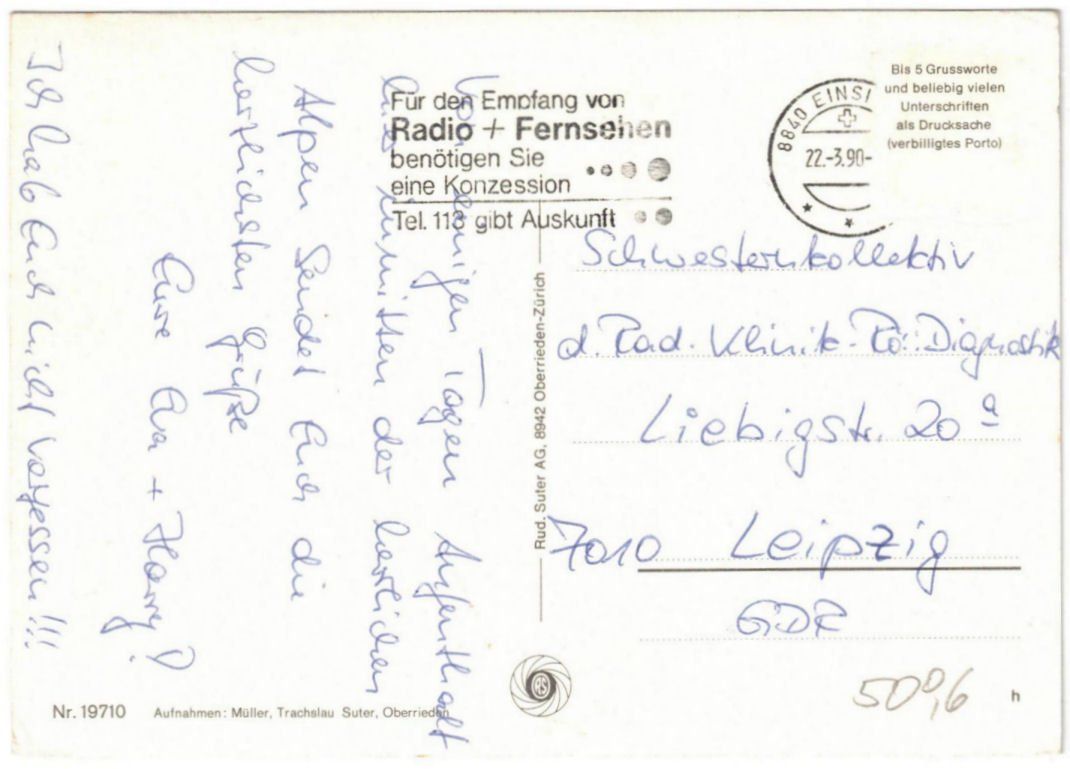 Von einigen Tagen Aufenthalt
hier inmitten der herrlichen
Alpen sendet Euch die
herzlichsten Grüße
Eure Eva + Harry!
Ich hab Euch nicht vergessen!!!
Für den Empfang von
Radio + Fernsehen
benötigen Sie
eine Konzession
Tel. 113 gibt Auskunft
8840 EINSI
22.-3.90-
Bis 5 Grussworte
und beliebig vielen
Unterschriften
als Drucksache
(verbilligtes Porto)
Schwesternkollektiv
d. Rad. Klinik-Rö.-Diagnostik
Liebigstr. 20a
7010 Leipzig
GDR
Rud. Suter AG, 8942 Oberrieden-Zürich
RS
Nr. 19710 Aufnahmen: Müller, Trachslau Suter, Oberrieden
h